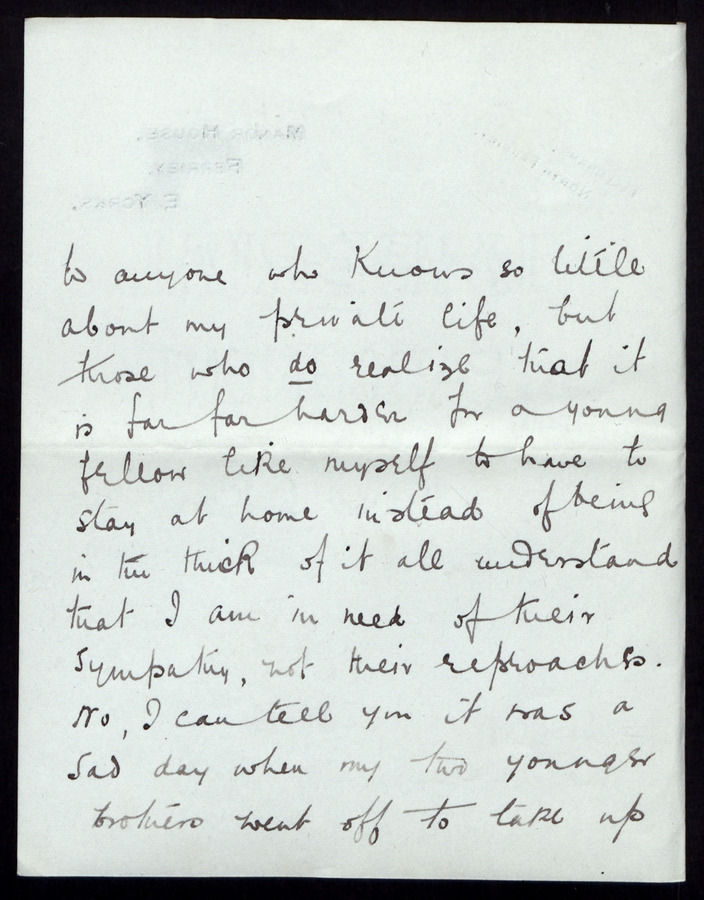 to anyone who knows so little
about my private life, but
those who do realize that it
is far far harder for a young
fellow like myself to have to
stay at home instead of being
in the thick of it all understand
that I am in need of their
sympathy, not their reproaches.
No, I can tell you it was a
sad day when my two younger
brothers went off to take up